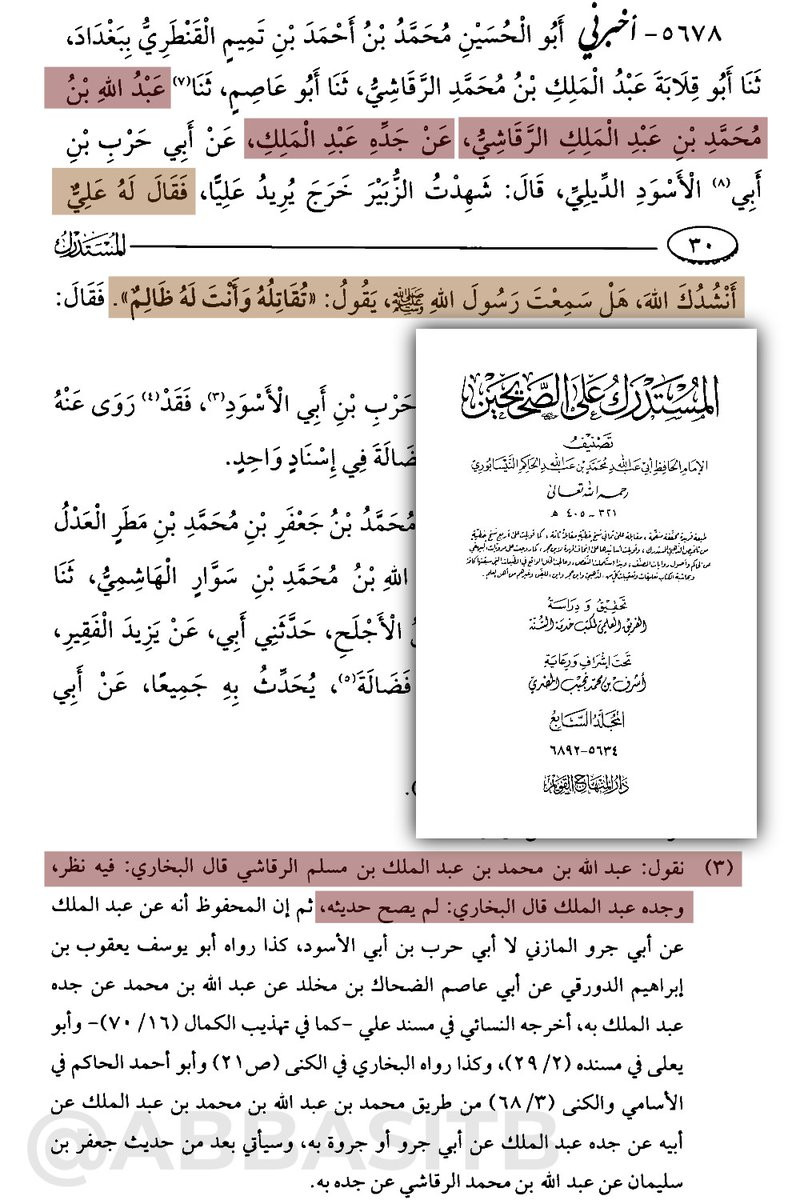 ٥٦٧٨- أخبرني أَبُو الْحُسَيْنِ مُحَمَّدُ بْنُ أَحْمَدَ بْنِ تَمِيمٍ الْقَنْطَرِيُّ بِبَغْدَادَ،
ثَنَا أَبُو قِلَابَةَ عَبْدُ الْمَلِكِ بْنُ مُحَمَّدٍ الرَّقَاشِيُّ، ثَنَا أَبُو عَاصِمٍ، ثَنَا(٧) عَبْدُ اللهِ بْنُ
مُحَمَّدِ بْنِ عَبْدِ الْمَلِكِ الرَّقَاشِيُّ، عَنْ جَدِّهِ عَبْدِ الْمَلِكِ، عَنْ أَبِي حَرْبِ بْنِ
أَبِي(٨) الْأَسْوَدِ الدِّيلِيِّ، قَالَ: شَهِدْتُ الزُّبَيْرَ خَرَجَ يُرِيدُ عَلِيًّا، فَقَالَ لَهُ عَلِيٌّ
٣٠ المُسْتَدْرَك
أَنْشُدُكَ اللهَ، هَلْ سَمِعْتَ رَسُولَ اللهِ ﷺ، يَقُولُ: «تُقَاتِلُهُ وَأَنْتَ لَهُ ظَالِمٌ». فَقَالَ:
حَرْبِ بْنِ أَبِي الْأَسْوَدِ(٣)، فَقَدْ(٤) رَوَى عَنْهُ
ضَالَةَ فِي إِسْنَادٍ وَاحِدٍ.
مُحَمَّدُ بْنُ جَعْفَرِ بْنِ مُحَمَّدِ بْنِ مَطَرٍ الْعَدْلُ
اللهِ بْنُ مُحَمَّدِ بْنِ سَوَّارٍ الْهَاشِمِيُّ، ثَنَا
الْأَجْلَحِ، حَدَّثَنِي أَبِي، عَنْ يَزِيدَ الْفَقِيرِ،
فَضَالَةَ(٥)، يُحَدِّثُ بِهِ جَمِيعًا، عَنْ أَبِي
المُسْتَدْرَكُ عَلَى الصَّحِيحَيْنِ
تَصْنِيفُ
الإمام الحافظ أبي عبد الله محمد بن عبد الله الحاكم النيسابوري
رحمه الله تعالى
٣٢١ - ٤٠٥ هـ
تحقيق ودراسة
الفريق العلمي لمكتب خدمة السنة
تحت إشراف ورعاية
أشرف بن محمد نجيب المصري
المجلد السابع
٥٦٣٤-٦٨٩٢
دار المنهاج القويم
(٣) نقول: عبد الله بن محمد بن عبد الملك بن مسلم الرقاشي قال البخاري: فيه نظر،
وجده عبد الملك قال البخاري: لم يصح حديثه، ثم إن المحفوظ أنه عن عبد الملك
عن أبي جرو المازني لا أبي حرب بن أبي الأسود، كذا رواه أبو يوسف يعقوب بن
إبراهيم الدورقي عن أبي عاصم الضحاك بن مخلد عن عبد الله بن محمد عن جده
عبد الملك به، أخرجه النسائي في مسند علي -كما في تهذيب الكمال (١٦/ ٧٠)- وأبو
يعلى في مسنده (٢/ ٢٩)، وكذا رواه البخاري في الكنى (ص٢١) وأبو أحمد الحاكم في
الأسامي والكنى (٣/ ٦٨) من طريق محمد بن عبد الله بن محمد بن عبد الملك عن
أبيه عن جده عبد الملك عن أبي جرو أو جروة به، وسيأتي بعد من حديث جعفر بن
سليمان عن عبد الله بن محمد الرقاشي عن جده به.
@ABBASITB